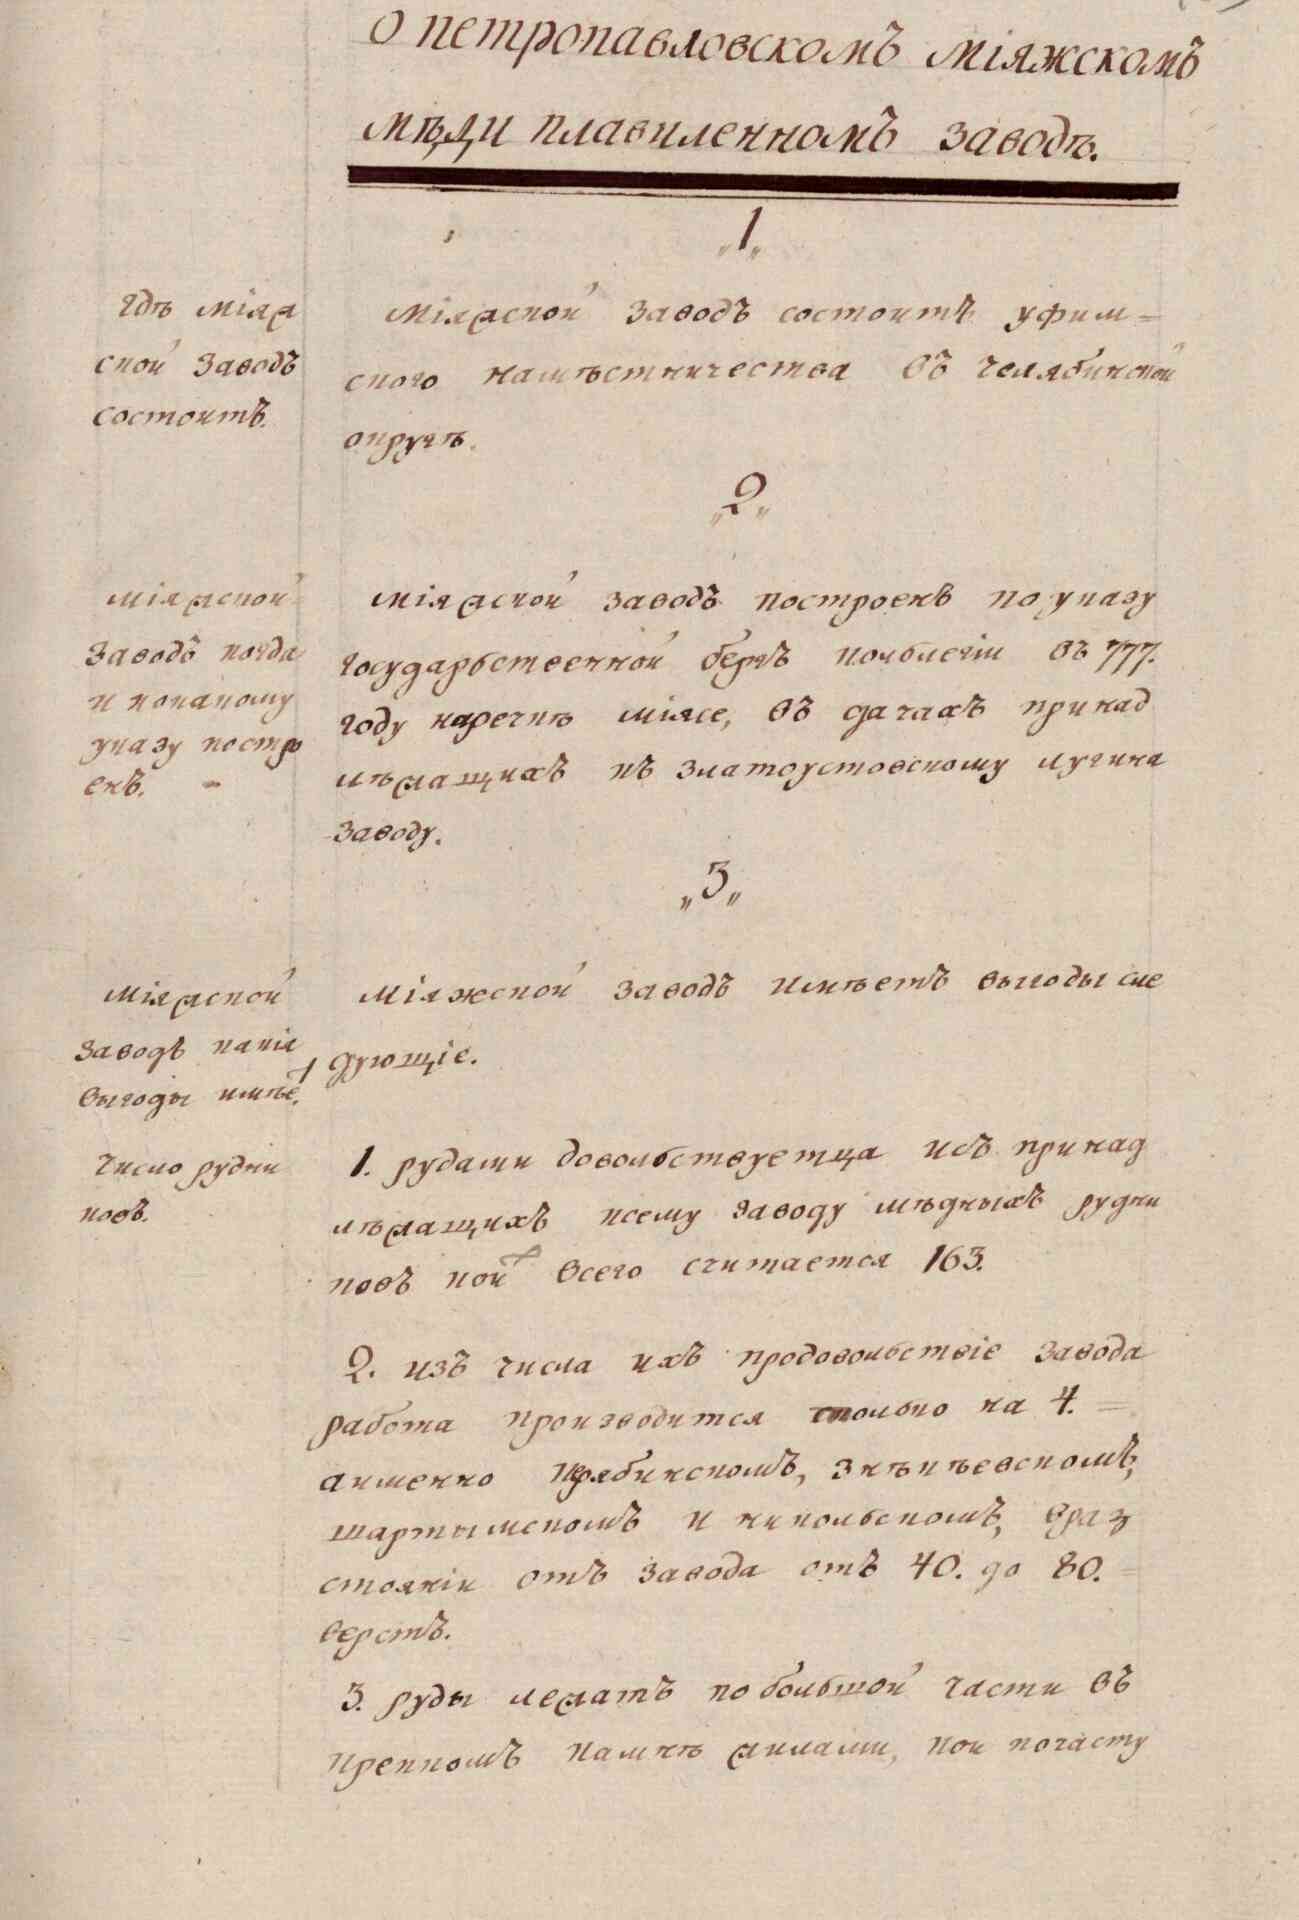 О петропавловскомъ міяжскомъ
мѣди плавиленномъ заводѣ.
„1„
гдѣ міяж
ской заводъ
состоитъ.
Міяжской заводъ состоитъ уфим=
ского намѣстничества въ челябинской
округѣ.
„2„
міяжской
заводъ когда
и покакому
указу постро
енъ. -
Міяжской заводъ построенъ по указу
государьственной бергъ колблегіи въ 777.
году наречкѣ міясе, въ дачахъ принад
лѣжащихъ къ златоустовскому лугина
заводу.
„3„
Міяжской
заводъ какія
выгоды имѣе т.
Міяжской заводъ имѣетъ выгоды сле
дующіе.
число рудни
ковъ.
1. рудами довольствуетца изъ принад
лѣжащихъ ксему заводу мѣдныхъ рудни
ковъ кои х всего считается 163.
2. изъ числа ихъ продовольствіе завода
работа производится только на 4. =
аименно прябинскомъ, знѣкѣевскомъ,
шартымскомъ и никольскомъ, враз
стояніи отъ завода отъ 40. до 80. =
верстъ.
3. руды лежатъ по большой части въ
крепкомъ камнѣ жилами, кои почасту